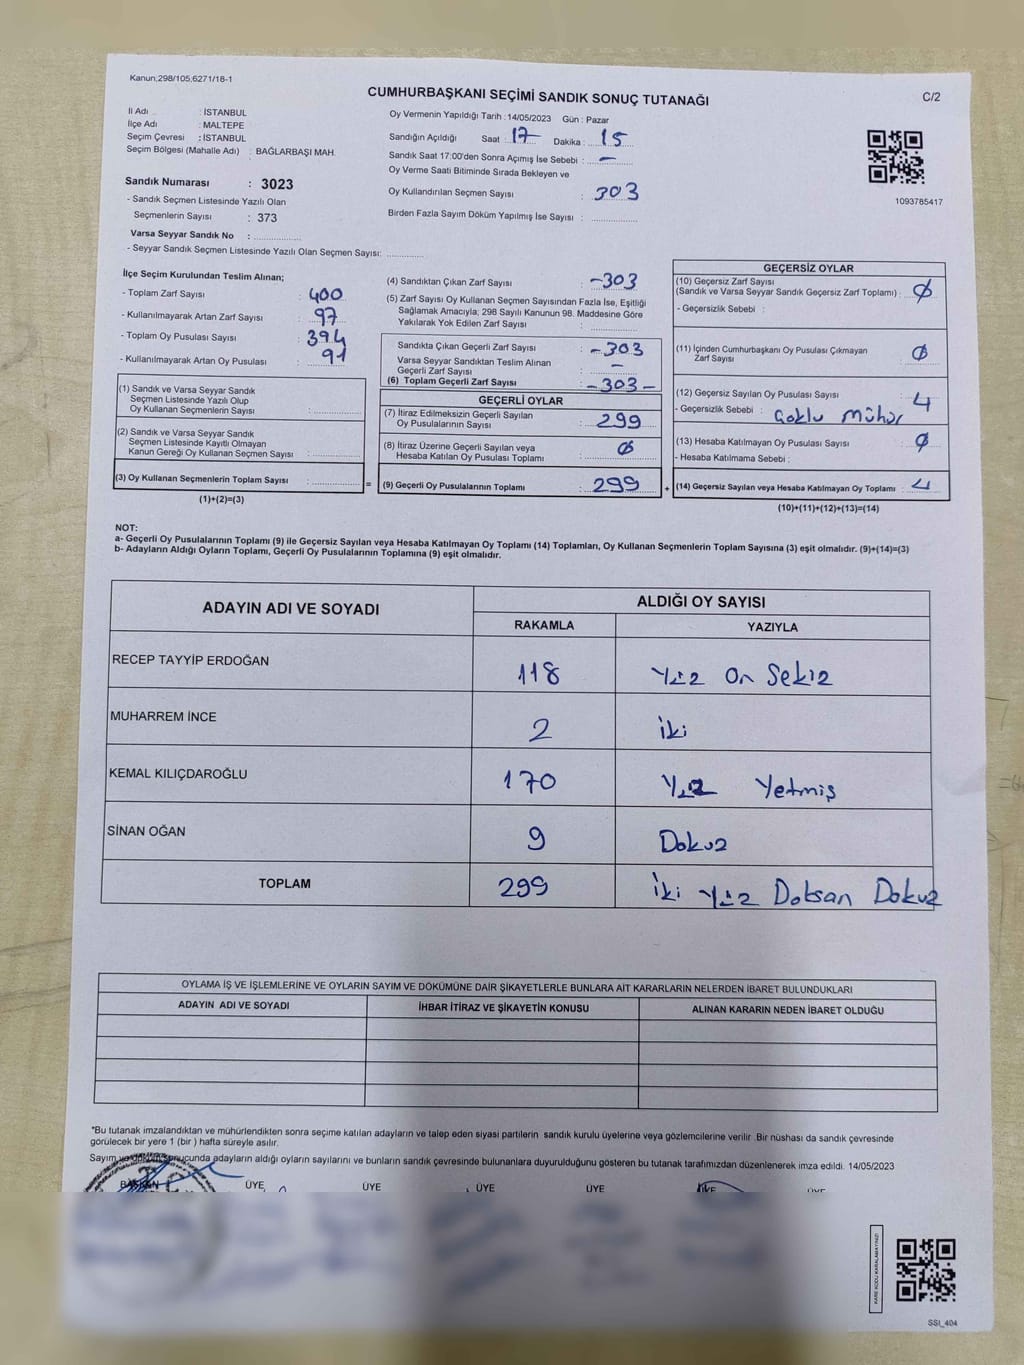 Kanun;298/105;6271/18-1
CUMHURBAŞKANI SEÇİMİ SANDIK SONUÇ TUTANAĞI
C/2
İl Adı : İSTANBUL
İlçe Adı : MALTEPE
Seçim Çevresi : İSTANBUL
Seçim Bölgesi (Mahalle Adı) : BAĞLARBAŞI MAH.
Sandık Numarası : 3023
- Sandık Seçmen Listesinde Yazılı Olan
Seçmenlerin Sayısı : 373
Varsa Seyyar Sandık No : ................
- Seyyar Sandık Seçmen Listesinde Yazılı Olan Seçmen Sayısı: ............
Oy Vermenin Yapıldığı Tarih : 14/05/2023 Gün : Pazar
Sandığın Açıldığı Saat 17 Dakika : 15
Sandık Saat 17:00'den Sonra Açımış İse Sebebi : –
Oy Verme Saati Bitiminde Sırada Bekleyen ve
Oy Kullandırılan Seçmen Sayısı : 303
Birden Fazla Sayım Döküm Yapılmış İse Sayısı : ................
1093785417
İlçe Seçim Kurulundan Teslim Alınan;
- Toplam Zarf Sayısı : 400
- Kullanılmayarak Artan Zarf Sayısı : 97
- Toplam Oy Pusulası Sayısı : 394
- Kullanılmayarak Artan Oy Pusulası : 91
(1) Sandık ve Varsa Seyyar Sandık
Seçmen Listesinde Yazılı Olup
Oy Kullanan Seçmenlerin Sayısı : ................
(2) Sandık ve Varsa Seyyar Sandık
Seçmen Listesinde Kayıtlı Olmayan
Kanun Gereği Oy Kullanan Seçmen Sayısı : ................
(3) Oy Kullanan Seçmenlerin Toplam Sayısı : ................
(1)+(2)=(3)
=
(4) Sandıktan Çıkan Zarf Sayısı : –303
(5) Zarf Sayısı Oy Kullanan Seçmen Sayısından Fazla İse, Eşitliği
Sağlamak Amacıyla; 298 Sayılı Kanunun 98. Maddesine Göre
Yakılarak Yok Edilen Zarf Sayısı : ................
Sandıkta Çıkan Geçerli Zarf Sayısı : –303
Varsa Seyyar Sandıktan Teslim Alınan
Geçerli Zarf Sayısı : –
(6) Toplam Geçerli Zarf Sayısı : –303–
GEÇERLİ OYLAR
(7) İtiraz Edilmeksizin Geçerli Sayılan
Oy Pusulalarının Sayısı : 299
(8) İtiraz Üzerine Geçerli Sayılan veya
Hesaba Katılan Oy Pusulası Toplamı : Ø
(9) Geçerli Oy Pusulalarının Toplamı : 299
+
GEÇERSİZ OYLAR
(10) Geçersiz Zarf Sayısı
(Sandık ve Varsa Seyyar Sandık Geçersiz Zarf Toplamı) : Ø
- Geçersizlik Sebebi :
(11) İçinden Cumhurbaşkanı Oy Pusulası Çıkmayan
Zarf Sayısı : Ø
(12) Geçersiz Sayılan Oy Pusulası Sayısı : 4
- Geçersizlik Sebebi : Çoklu Mühür
(13) Hesaba Katılmayan Oy Pusulası Sayısı : Ø
- Hesaba Katılmama Sebebi :
(14) Geçersiz Sayılan veya Hesaba Katılmayan Oy Toplamı : 4
(10)+(11)+(12)+(13)=(14)
NOT:
a- Geçerli Oy Pusulalarının Toplamı (9) ile Geçersiz Sayılan veya Hesaba Katılmayan Oy Toplamı (14) Toplamları, Oy Kullanan Seçmenlerin Toplam Sayısına (3) eşit olmalıdır. (9)+(14)=(3)
b- Adayların Aldığı Oyların Toplamı, Geçerli Oy Pusulalarının Toplamına (9) eşit olmalıdır.
ADAYIN ADI VE SOYADI ALDIĞI OY SAYISI
RAKAMLA YAZIYLA
RECEP TAYYİP ERDOĞAN 118 Yüz On Sekiz
MUHARREM İNCE 2 İki
KEMAL KILIÇDAROĞLU 170 Yüz Yetmiş
SİNAN OĞAN 9 Dokuz
TOPLAM 299 İki Yüz Doksan Dokuz
OYLAMA İŞ VE İŞLEMLERİNE VE OYLARIN SAYIM VE DÖKÜMÜNE DAİR ŞİKAYETLERLE BUNLARA AİT KARARLARIN NELERDEN İBARET BULUNDUKLARI
ADAYIN ADI VE SOYADI İHBAR İTİRAZ VE ŞİKAYETİN KONUSU ALINAN KARARIN NEDEN İBARET OLDUĞU
*Bu tutanak imzalandıktan ve mühürlendikten sonra seçime katılan adayların ve talep eden siyasi partilerin sandık kurulu üyelerine veya gözlemcilerine verilir .Bir nüshası da sandık çevresinde
görülecek bir yere 1 (bir ) hafta süreyle asılır.
Sayım ve döküm sonucunda adayların aldığı oyların sayılarını ve bunların sandık çevresinde bulunanlara duyurulduğunu gösteren bu tutanak tarafımızdan düzenlenerek imza edildi. 14/05/2023
BAŞKAN ÜYE ÜYE ÜYE ÜYE ÜYE ÜYE
KARE KODU KARALAMAYINIZ!
SSI_404